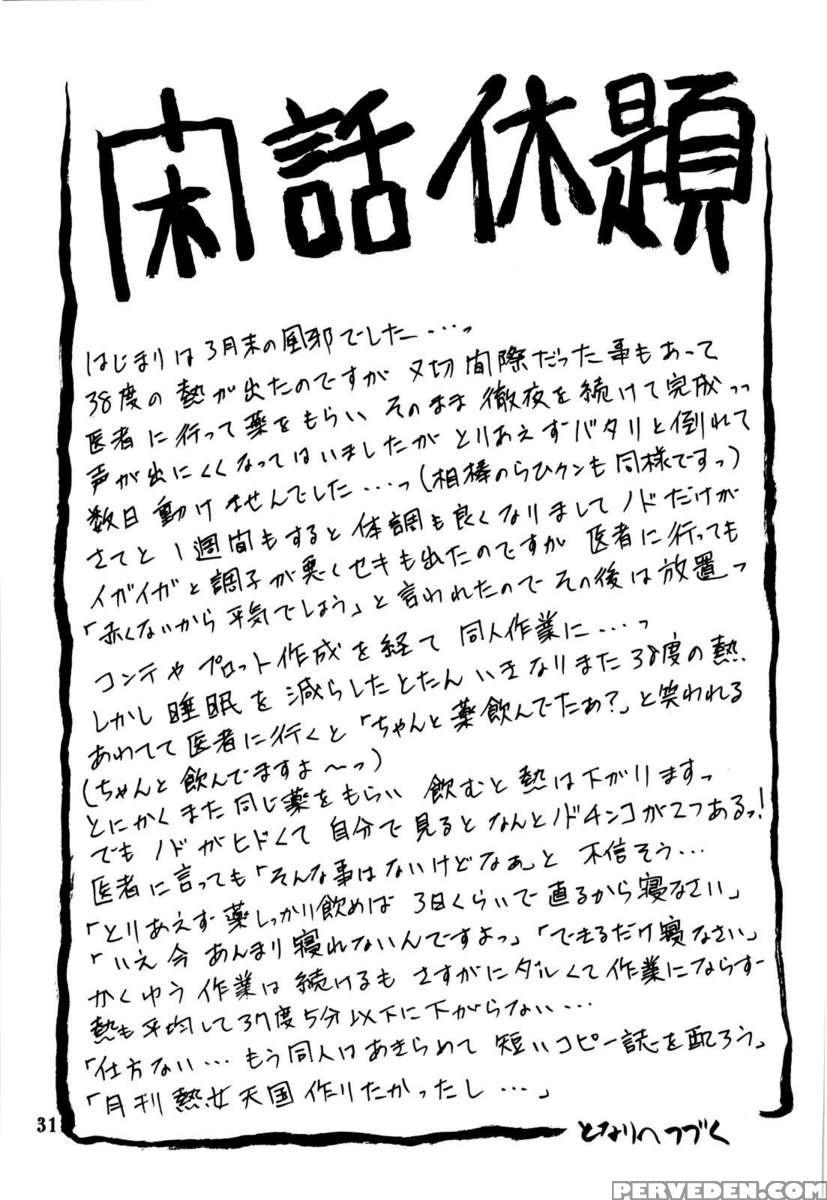 閑話休題
はじまりは3月末の風邪でした…っ
38度の熱が出たのですが 〆切間際だった事もあって
医者に行って薬をもらい そのまま徹夜を続けて完成っっ
声が出にくくなってはいましたが とりあえずバタリと倒れて
数日動けませんでした…っ(相棒のらひクンも同様ですっ)
さてと 1週間もすると体調も良くなりまして ノドだけが
イガイガと調子が悪くセキも出たのですが 医者に行っても
「赤くないから平気でしょう」と言われたので その後は放置っ
コンテや プロット作成を経て 同人作業に…っ
しかし睡眠を減らしたとたん いきなりまた38度の熱
あわてて医者に行くと「ちゃんと薬飲んでたぁ?」と笑われる
(ちゃんと飲んでますよ〜っ)
とにかくまた同じ薬をもらい 飲むと熱は下がりますっ
でも ノドがヒドくて 自分で見るとなんとノドチンコが2つあるっ!
医者に言っても「そんな事はないけどなぁ」と 不信そう…
「とりあえず薬しっかり飲めば 3日くらいで直るから寝なさい」
「いえ今 あんまり寝れないんですよっ」「できるだけ寝なさい」
かくゆう作業は続けるも さすがにダルくて作業にならず
熱も平均して37度5分以下に下がらない…
「仕方ない…もう同人はあきらめて 短いコピー誌を配ろう」
「月刊熱女天国作りたかったし…」
となりへつづく
31
PERVEDEN.COM